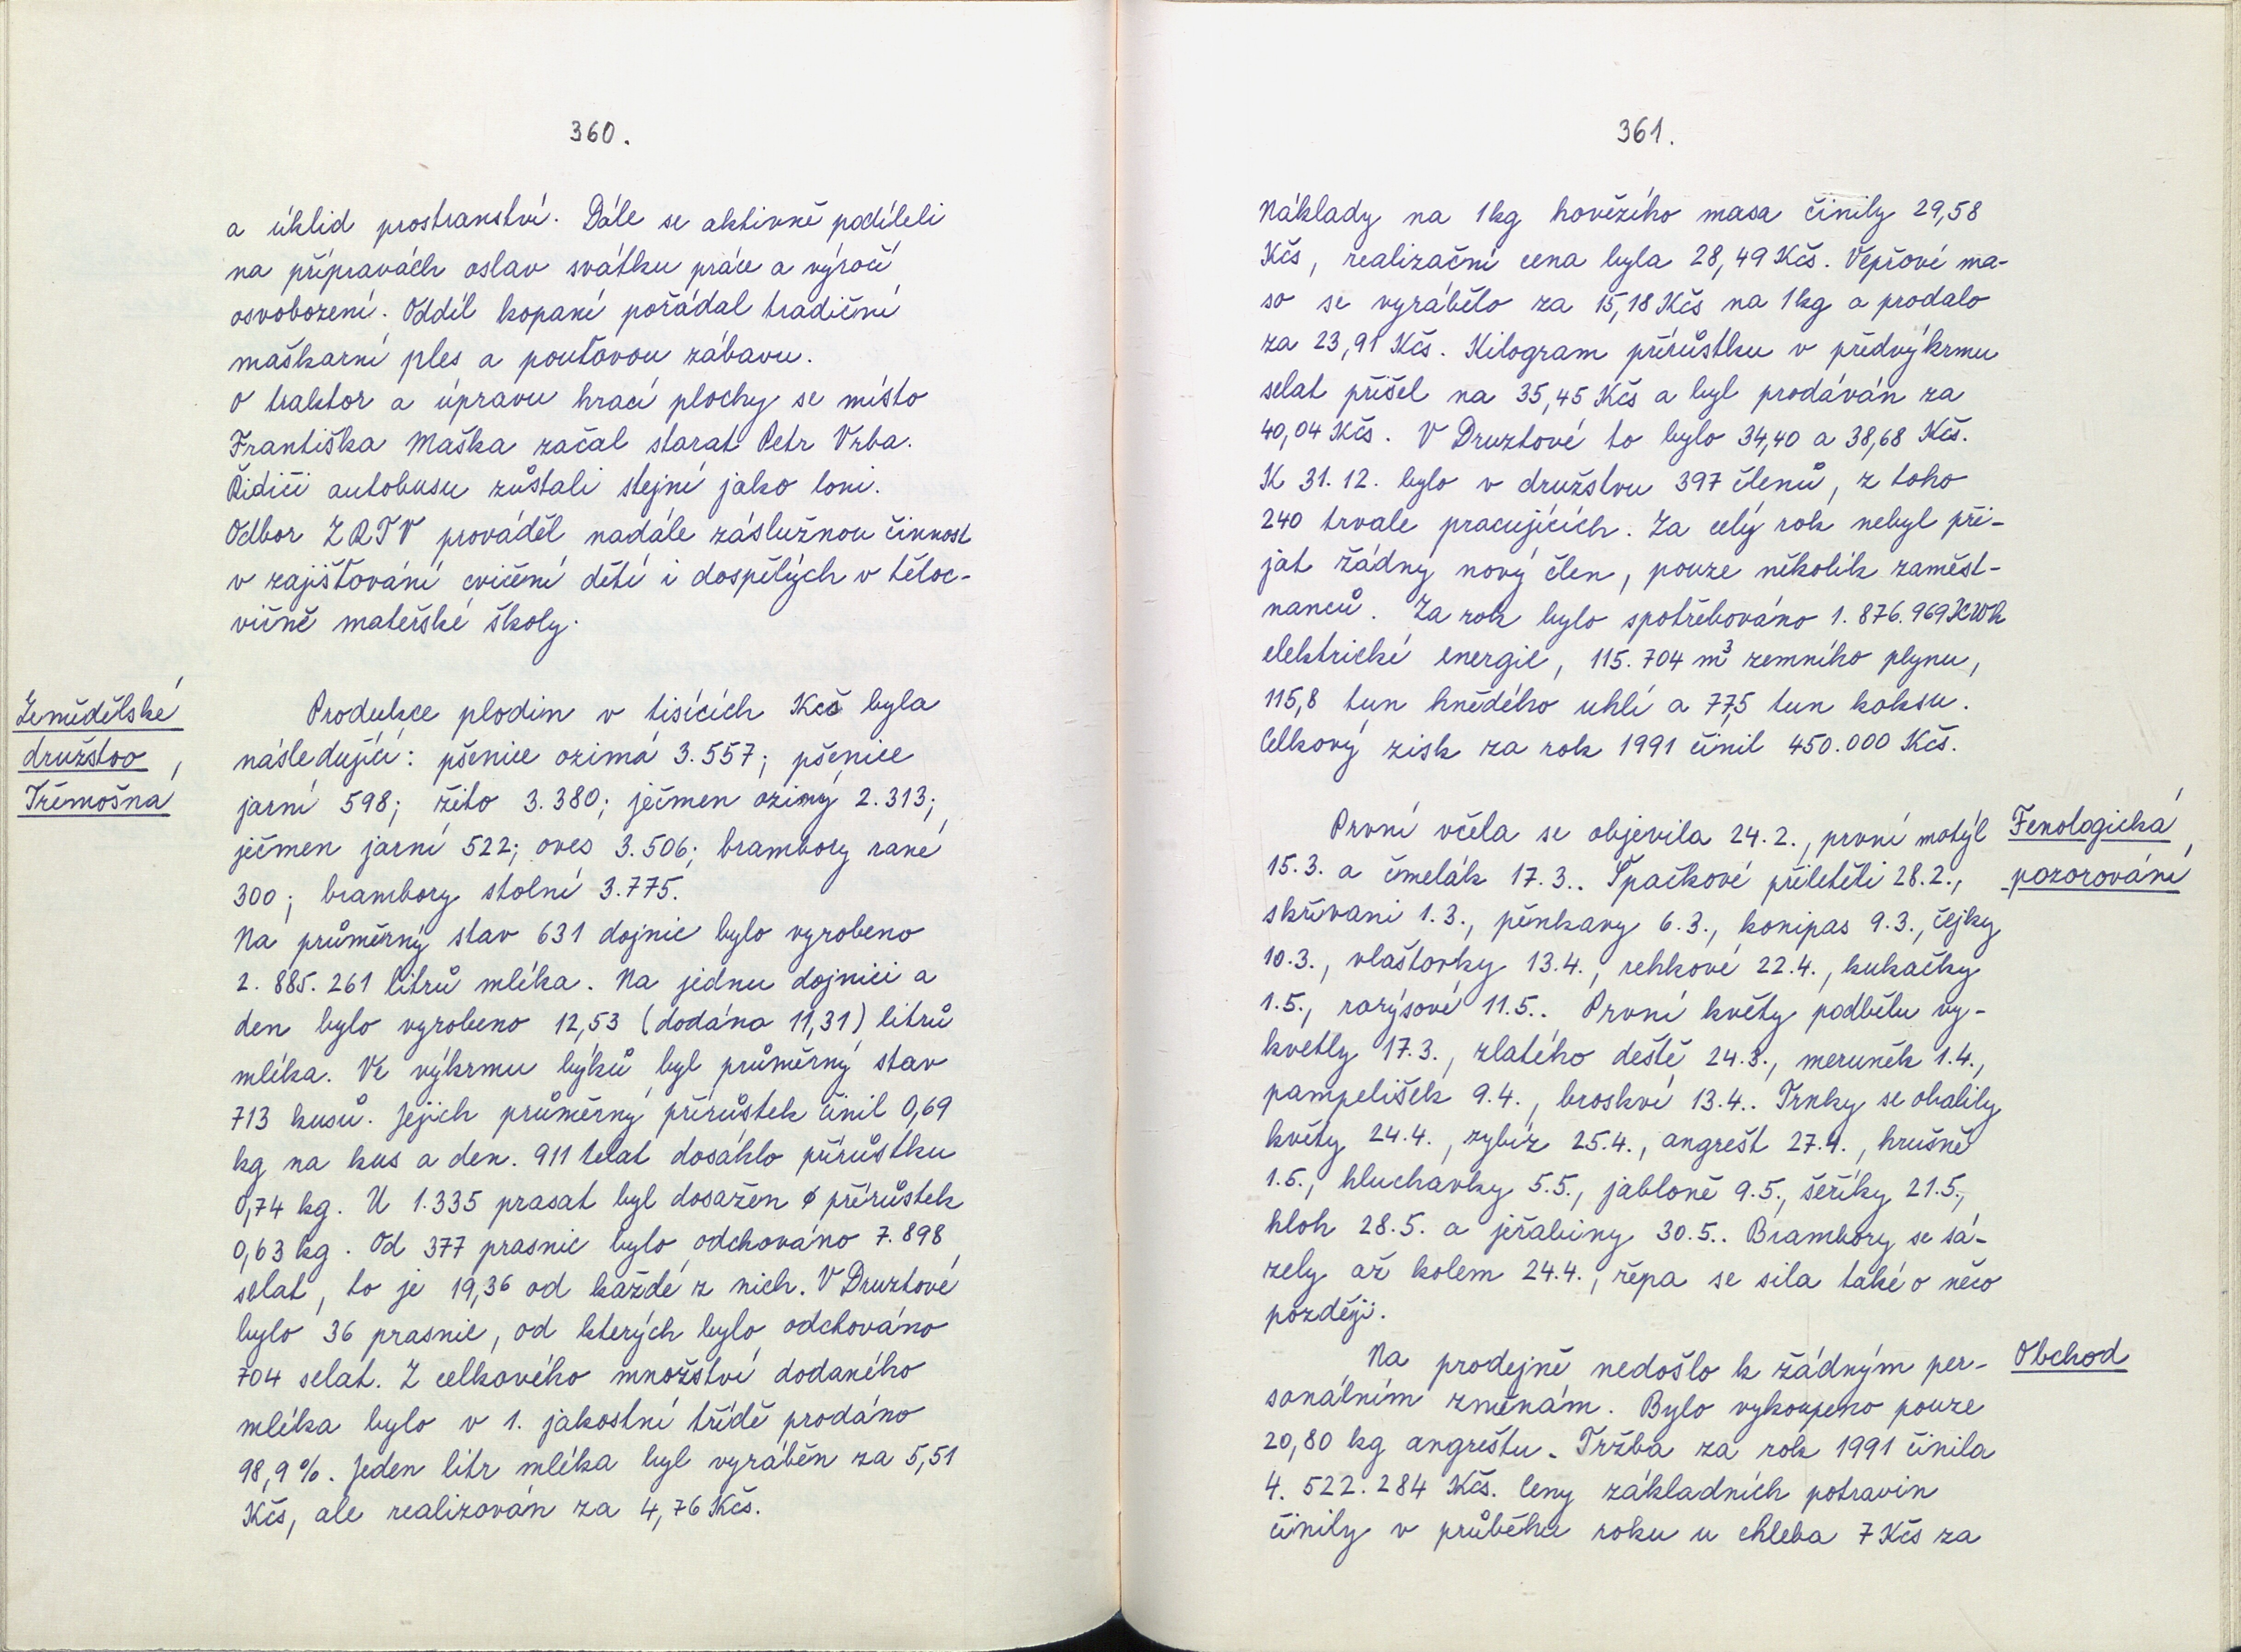 360.
a úklid prostranství. Dále se aktivně podíleli
na přípravách oslav svátku práce a výročí
osvobození. Oddíl kopané pořádal tradiční
maškarní ples a pouťovou zábavu.
O traktor a úpravu hrací plochy se místo
Františka Maška začal starat Petr Vrba.
Řidiči autobusu zůstali stejní jako loni.
Odbor ZRTV prováděl nadále záslužnou činnost
v zajišťování cvičení dětí i dospělých v těloc-
vičně mateřské školy.
Zemědělské
družstvo
Třemošná
Produkce plodin v tisících Kčs byla
následující: pšenice ozimá 3.557; pšenice
jarní 598; žito 3.380; ječmen ozimý 2.313;
ječmen jarní 522; oves 3.506; brambory rané
300; brambory stolní 3.775.
Na průměrný stav 631 dojnic bylo vyrobeno
2.885.261 litrů mléka. Na jednu dojnici a
den bylo vyrobeno 12,53 (dodáno 11,31) litrů
mléka. Ve výkrmu býků byl průměrný stav
713 kusů. Jejich průměrný přírůstek činil 0,69
kg na kus a den. 911 telat dosáhlo přírůstku
0,74 kg. U 1.335 prasat byl dosažen ϕ přírůstek
0,63 kg. Od 377 prasnic bylo odchováno 7.898
selat, to je 19,36 od každé z nich. V Druztové
bylo 36 prasnic, od kterých bylo odchováno
704 selat. Z celkového množství dodaného
mléka bylo v 1. jakostní třídě prodáno
98,9%. Jeden litr mléka byl vyráběn za 5,51
Kčs, ale realizován za 4,76 Kčs.
361.
Náklady na 1kg hovězího masa činily 29,58
Kčs, realizační cena byla 28,49 Kčs. Vepřové ma-
so se vyrábělo za 15,18 Kčs na 1kg a prodalo
za 23,91 Kčs. Kilogram přírůstku v předvýkrmu
selat přišel na 35,45 Kčs a byl prodáván za
40,04 Kčs. V Druztové to bylo 34,40 a 38,68 Kčs.
K 31.12. bylo v družstvu 397 členů, z toho
240 trvale pracujících. Za celý rok nebyl při-
jat žádný nový člen, pouze několik zaměst-
nanců. Za rok bylo spotřebováno 1.876.969 KWh
elektrické energie, 115.704 m³ zemního plynu,
115,8 tun hnědého uhlí a 77,5 tun koksu.
Celkový zisk za rok 1991 činil 450.000 Kčs.
Fenologická
pozorování
První včela se objevila 24.2., první motýl
15.3. a čmelák 17.3.. Špačkové přiletěli 28.2.,
skřivani 1.3., pěnkavy 6.3., konipas 9.3., čejky
10.3., vlaštovky 13.4., rehkové 22.4., kukačky
1.5., rorýsové 11.5.. První květy podbělu vy-
kvetly 17.3., zlatého deště 24.3., meruněk 1.4.,
pampelišek 9.4., broskví 13.4.. Trnky se obalily
květy 24.4., rybíz 25.4., angrešt 27.4., hrušně
1.5., hluchavky 5.5., jabloně 9.5., šeříky 21.5.,
hloh 28.5. a jeřabiny 30.5.. Brambory se sá-
zely až kolem 24.4., řepa se sila také o něco
později.
Obchod
Na prodejně nedošlo k žádným per-
sonálním změnám. Bylo vykoupeno pouze
20,80 kg angreštu. Tržba za rok 1991 činila
4.522.284 Kčs. Ceny základních potravin
činily v průběhu roku u chleba 7 Kčs za